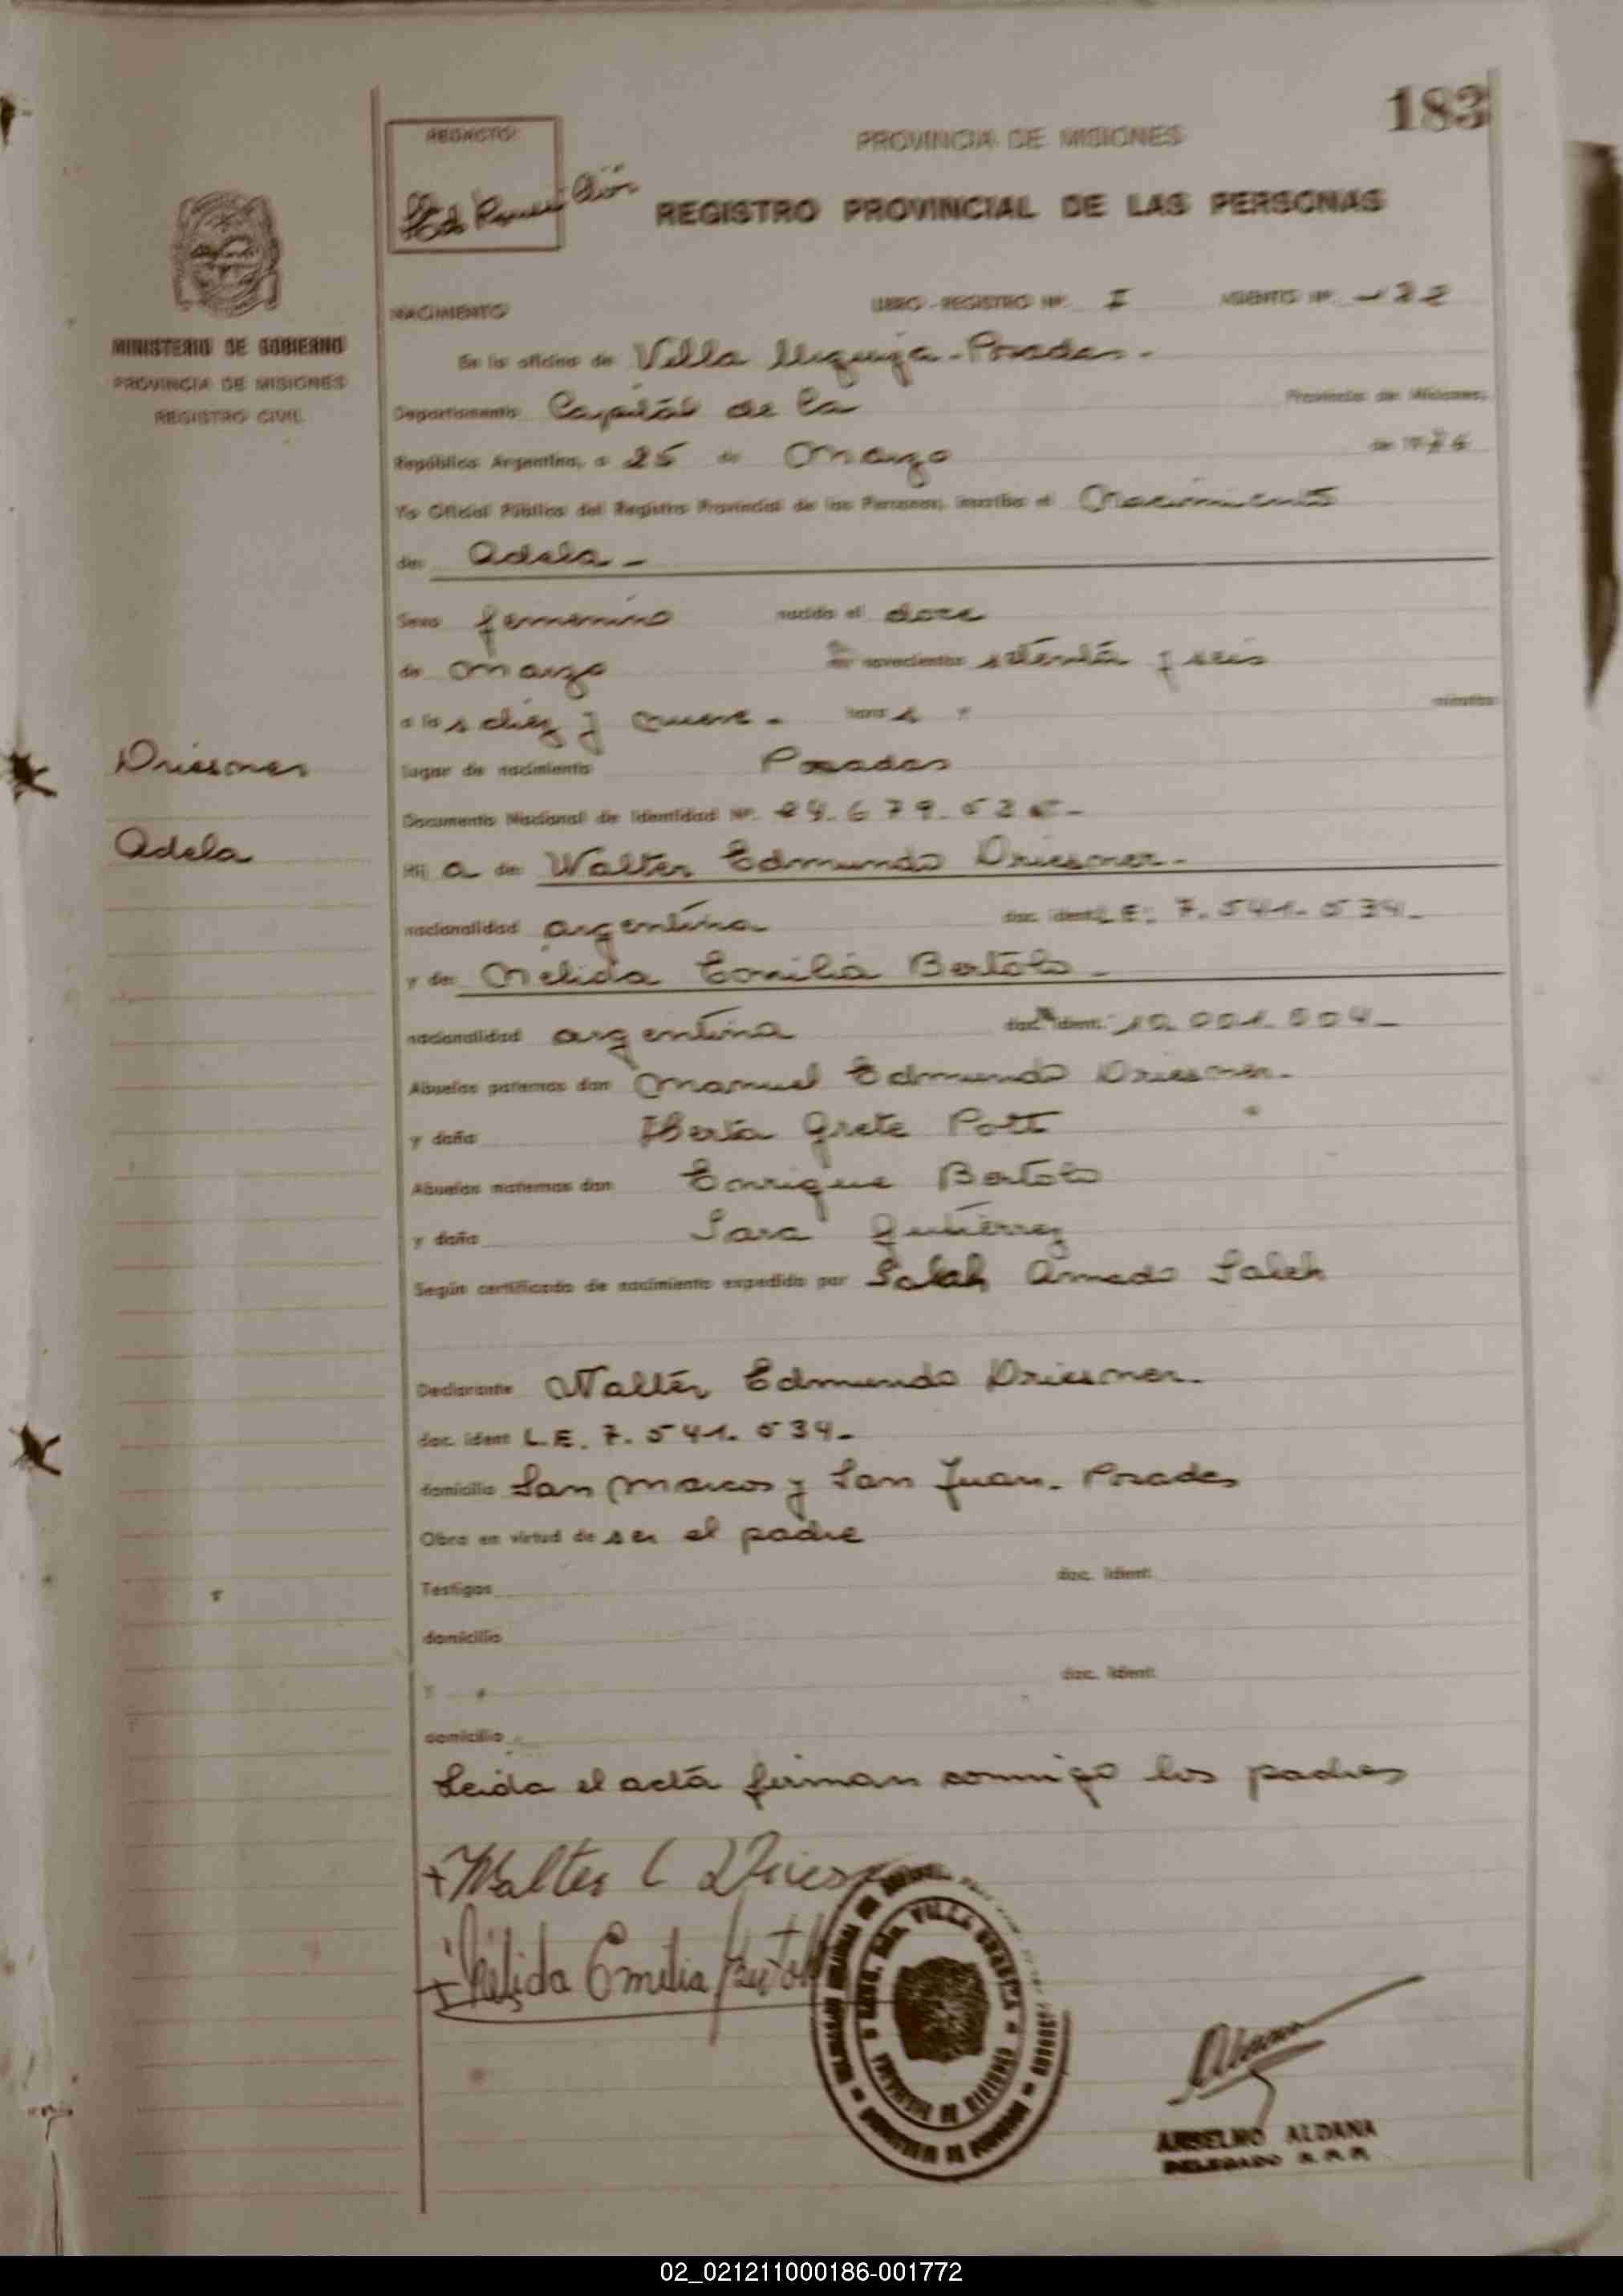 183
REDACTO:
PROVINCIA DE MISIONES
REGISTRO PROVINCIAL DE LAS PERSONAS
MINISTERIO DE GOBIERNO
PROVINCIA DE MISIONES
REGISTRO CIVIL
NACIMIENTO LIBRO - REGISTRO Nº I ASIENTO Nº
En la oficina de Villa Urquiza - Posadas -
Departamento Capital de la Provincia de Misiones,
República Argentina, a 25 de Marzo de 1976
Yo Oficial Público del Registro Provincial de las Personas, inscribo el Nacimiento
de: Adela -
Sexo femenino nacido el doce
de Marzo novecientos setenta y seis
a las diez y nueve - horas minutos
Driesner
lugar de nacimiento Posadas
Documento Nacional de Identidad Nº
Adela
Hij a de: Walter Edmundo Driesner -
nacionalidad argentina doc. ident. L.E: 7.541.534 -
y de: Nelida Emilia Bertolo -
nacionalidad argentina doc. ident:
Abuelos paternos don Manuel Edmundo Driesner -
y doña Berta Grete Pott
Abuelos maternos don Enrique Bertolo
y doña Sara Gutierrez
Según certificado de nacimiento expedido por Salah Amado Saleh
Declarante Walter Edmundo Driesner.
doc. ident L.E. 7.541.534 -
domicilio San Marcos y San Juan - Posadas
Obra en virtud de ser el padre
Testigos doc. ident:
domicilio
y doc. ident:
domicilio
Leida el acta firman conmigo los padres
Walter E Dries
Nélida Emilia Bertolo
VILLA URQUIZA
PROVINCIA DE MISIONES
ANSELMO ALDANA
DELEGADO R. P. P.
02_021211000186-001772